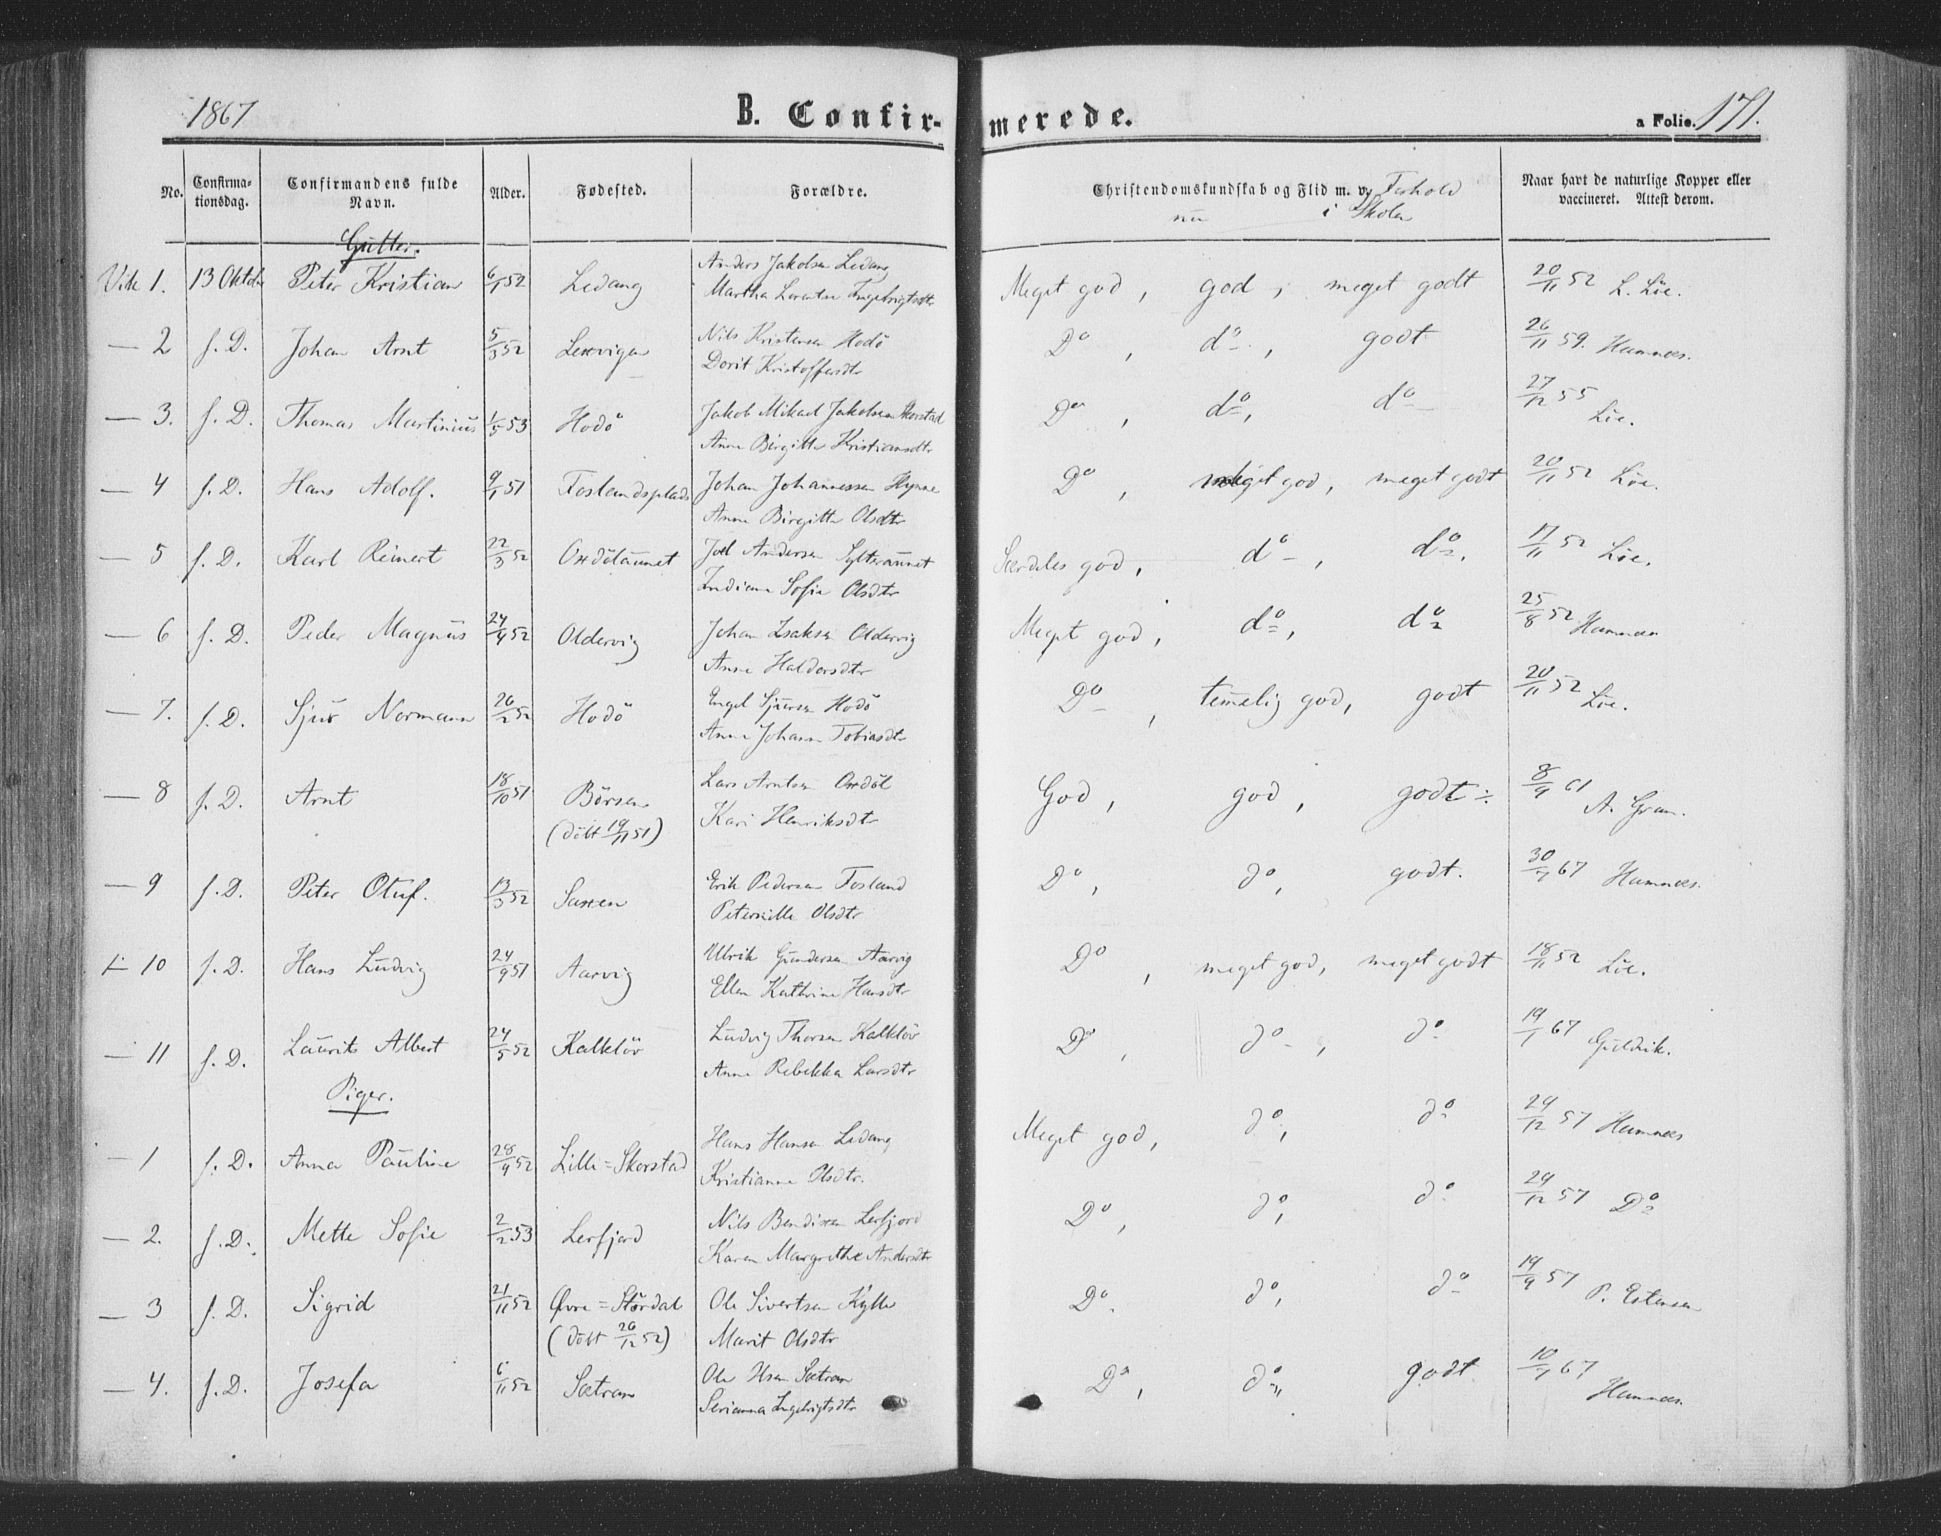 1867
B. Confir-
merede.
a Folie. 171.
No.
Confirma-
tionsdag.
Confirmandens fulde
Navn.
Alder.
Fødested.
Forældre.
Christendomskundskab og Flid m. v. Forhold
nu i Skolen
Naar havt de naturlige Kopper eller
vaccineret. Attest derom.
Gutter.
Vik 1. 13 Oktober Peter Kristian 6/1 52 Ledang Anders Jakobsen Ledang
Martha Lorentse Ingebrigtsdtr
Meget god, god, meget godt 20/11 52 L. Löe.
— 2 f. D. Johan Arnt 5/3 52 Lexvigen Nils Kristensen Hodö
Dorit Kristoffersdtr
Do, do, godt 26/11 59. Hamnes.
— 3. f. D. Thomas Martinius 1/5 53 Hodö Jakob Mikael Jakobsen Skorstad
Anne Birgitte Kristiansdtr
Do, do, do 27/12 55 Löe.
— 4 f. D. Hans Adolf. 9/1 51 Foslandsplads Johan Johannessen Hynne
Anne Birgitte Olsdtr
Do, meget god, meget godt 20/11 52 Löe.
— 5 f. D. Karl Reinert 22/3 52 Oxdötaunet Joel Andersen Sylteraunet
Indiana Sofie Olsdtr
Særdeles god, do, do. 17/11 52 Löe.
— 6 f. D. Peder Magnus 24/4 52 Oldervig Johan Isaksen Oldervig
Anne Haldorsdtr
Meget god, do, do 25/8 52 Hamnes
— 7. f. D. Sjur Normann 26/2 52 Hodö Engel Sjursen Hodö
Anne Johanne Tobiasdtr
Do, temelig god, godt 20/11 52 Löe.
— 8 f. D. Arnt 18/10 51 Börsen Lars Arntsen Oxdöl
(döbt 19/11 51) Kari Henriksdtr
God, god, godt ÷ 8/9 61 A. Gran.
— 9 f. D. Peter Oluf. 13/3 52 Saxen Erik Pedersen Fosland
Peternille Olsdtr
Do, do, godt. 30/7 67 Hamnes.
10 f. D. Hans Ludvig 24/9 51 Aarvig Ulrik Gundersen Aarvig
Ellen Kathrine Hansdtr
Do, meget god, meget godt 18/11 52 Löe.
— 11 f. D. Laurits Albert 24/5 52 Kalklöv Ludvig Thorsen Kalklöv
Anne Rebekka Larsdtr
Do, do, do 19/1 67 Guldvik.
Piger.
— 1 f. D. Anna Pauline 28/4 52 Lille-Skorstad Hans Hansen Ledang
Kristianne Olsdtr.
Meget god, do, do 29/12 57 Hamnes
— 2. f. D. Mette Sofie 2/2 53 Lerfjord Nils Bendixen Lerfjord
Karen Margrethe Andersdtr
Do, do, do 29/12 57 Do
— 3 f. D. Sigrid 21/11 52 Øvre-Stördal Ole Sivertsen Kylle
(döbt 26/12 52) Marit Olsdtr
Do. do, do 19/9 57 P. Estensen
— 4. f. D. Josefa 6/11 52 Sætran Ole Hsen Sætran
Serianna Ingebrigtsdtr
Do, do, godt 10/7 67 Hamnes.